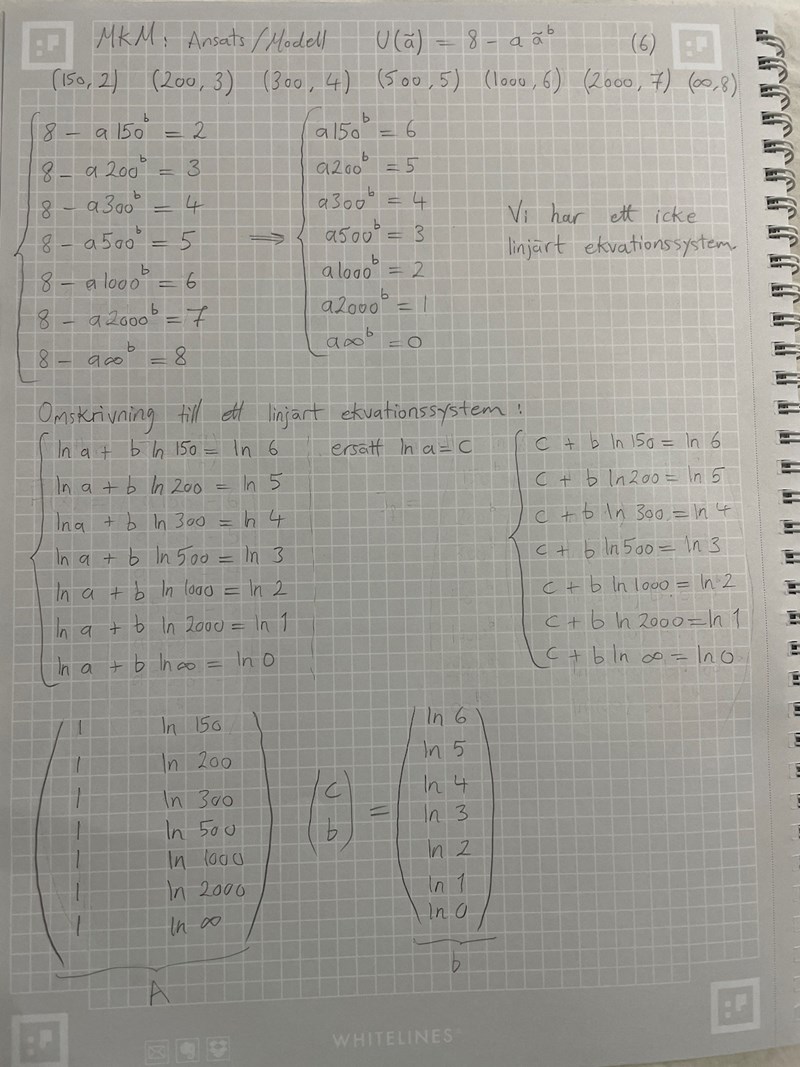 MKM: Ansats/Modell U(ã) = 8 - a ã^b (6)
(150,2) (200,3) (300,4) (500,5) (1000,6) (2000,7) (∞,8)
8 - a150^b = 2
8 - a200^b = 3
8 - a300^b = 4
8 - a500^b = 5
8 - a1000^b = 6
8 - a2000^b = 7
8 - a∞^b = 8
⇒
a150^b = 6
a200^b = 5
a300^b = 4
a500^b = 3
a1000^b = 2
a2000^b = 1
a∞^b = 0
Vi har ett icke
linjärt ekvationssystem.
Omskrivning till ett linjärt ekvationssystem:
ln a + b ln 150 = ln 6
ln a + b ln 200 = ln 5
ln a + b ln 300 = ln 4
ln a + b ln 500 = ln 3
ln a + b ln 1000 = ln 2
ln a + b ln 2000 = ln 1
ln a + b ln ∞ = ln 0
ersätt ln a = c
c + b ln 150 = ln 6
c + b ln 200 = ln 5
c + b ln 300 = ln 4
c + b ln 500 = ln 3
c + b ln 1000 = ln 2
c + b ln 2000 = ln 1
c + b ln ∞ = ln 0
1 ln 150
1 ln 200
1 ln 300
1 ln 500
1 ln 1000
1 ln 2000
1 ln ∞
A
c
b
=
ln 6
ln 5
ln 4
ln 3
ln 2
ln 1
ln 0
b
WHITELINES